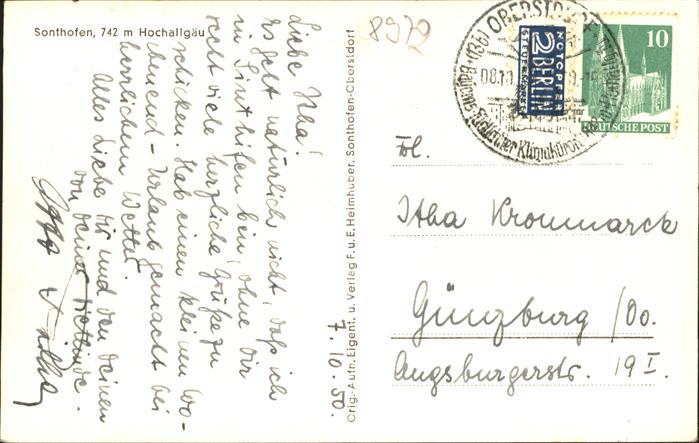 Sonthofen, 742 m Hochallgäu
8972
Liebe Itha!
Es geht natürlich nicht, daß ich
in Sonthofen bin, ohne Dir
recht viele herzliche Grüße zu
schicken. Hab einen kleinen Wo-
chenend-Urlaub gemacht bei
herrlichem Wetter.
Alles Liebe Dir und den Deinen
von Deiner
7.10.50.
Orig.-Aufn. Eigent. u. Verlag F. u. E. Heimhuber, Sonthofen-Oberstdorf
(13b) OBERSTDORF
08.10
NOTOPFER
2 BERLIN
STEUERMARKE
10
DEUTSCHE POST
Frl.
Itha Kronmarck
Günzburg/Do.
Augsburgerstr. 19 I.